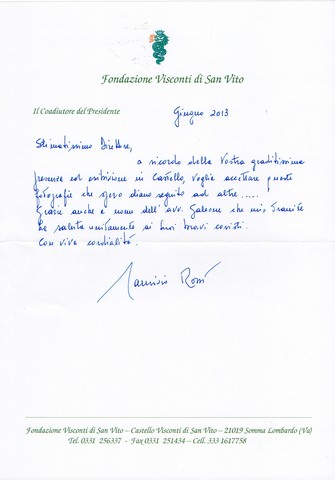 Fondazione Visconti di San Vito
Il Coadiutore del Presidente
Giugno 2013
Stimatissimo Direttore,
a ricordo della Vostra graditissima
presenza ed esibizione in Castello, voglia accettare queste
fotografie che spero diano seguito ad altre.....
Grazie anche a nome dell' avv. Galeone che mio tramite
La saluta unitamente ai Suoi bravi coristi.
Con viva cordialità.
Maurizio Rossi
Fondazione Visconti di San Vito – Castello Visconti di San Vito – 21019 Somma Lombardo (Va)
Tel. 0331 256337 - Fax 0331 251434 – Cell. 333 1617758